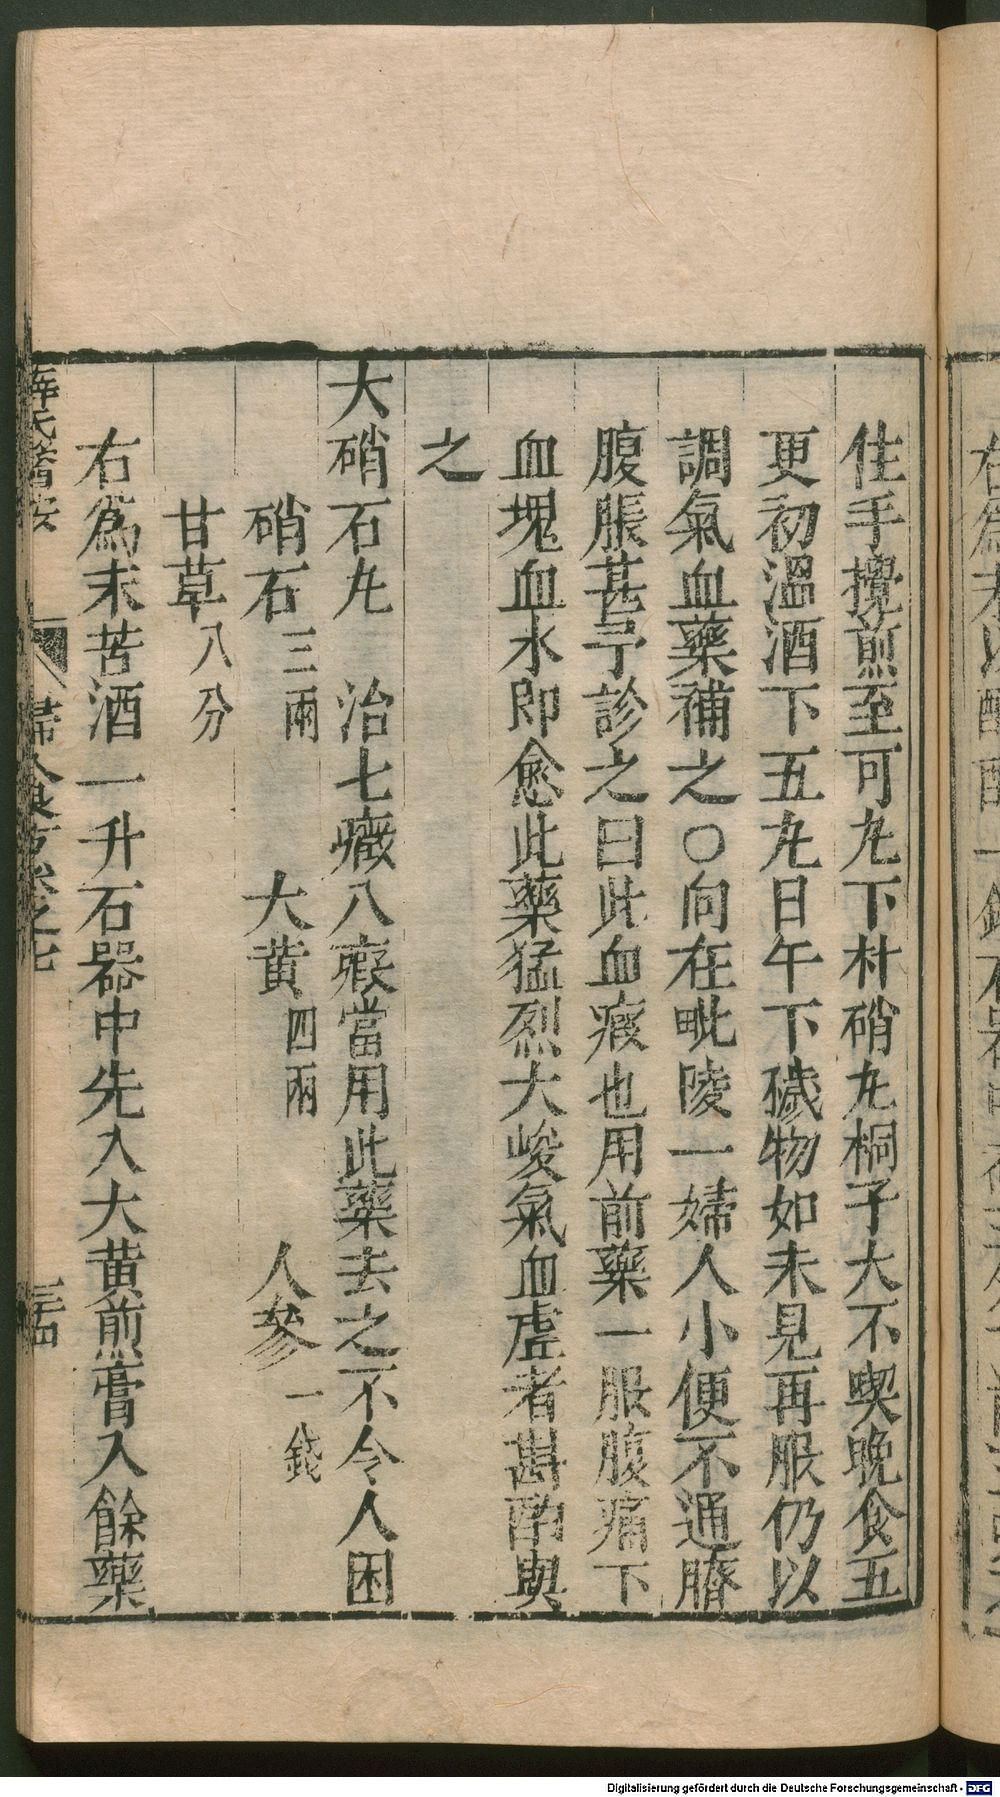 住手攪煎至可丸下朴硝丸桐子大不喫晚食五
更初溫酒下五丸日午下穢物如未見再服仍以
調氣血藥補之○向在毗陵一婦人小便不通臍
腹脹甚予診之曰此血瘕也用前藥一服腹痛下
血塊血水即愈此藥猛烈大峻氣血虛者斟酌與
之
大硝石丸　治七癥八瘕當用此藥去之不令人困
硝石三兩　大黄四兩　人參一錢
甘草八分
右爲末苦酒一升石器中先入大黄煎膏入餘藥
薛氏醫按　婦人良方卷之七　三十四
Digitalisierung gefördert durch die Deutsche Forschungsgemeinschaft - DFG